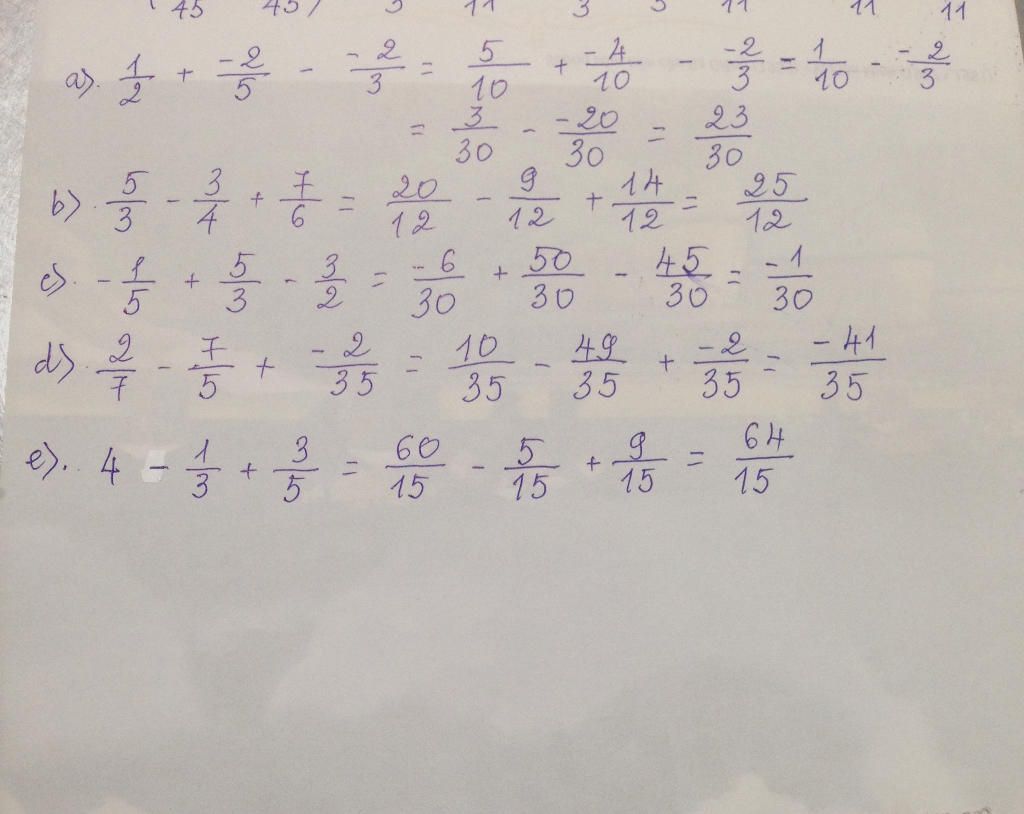 45 45) 3 11 3 3 11 11 11
a). 1/2 + -2/5 - -2/3 = 5/10 + -4/10 - -2/3 = 1/10 - -2/3
= 3/30 - -20/30 = 23/30
b). 5/3 - 3/4 + 7/6 = 20/12 - 9/12 + 14/12 = 25/12
c). -1/5 + 5/3 - 3/2 = -6/30 + 50/30 - 45/30 = -1/30
d). 2/7 - 7/5 + -2/35 = 10/35 - 49/35 + -2/35 = -41/35
e). 4 - 1/3 + 3/5 = 60/15 - 5/15 + 9/15 = 64/15